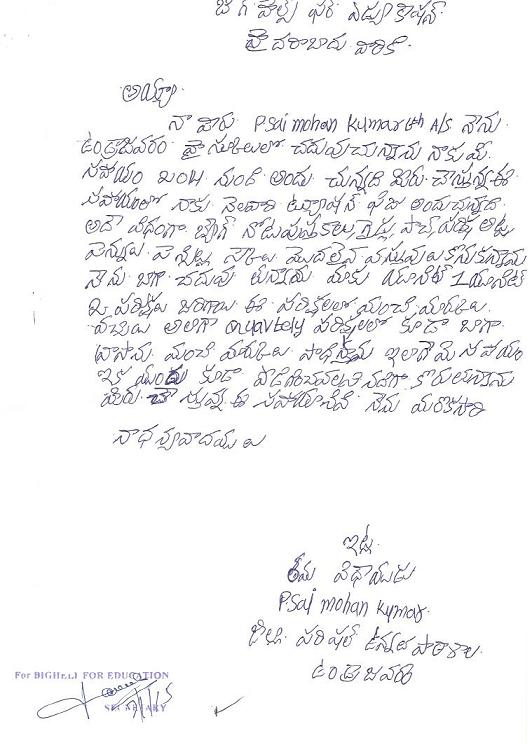 బిగ్ హెల్ప్ ఫర్ ఎడ్యుకేషన్.
హైదరాబాదు వారికి.
అయ్యా
నా పేరు P.Sai mohan Kumar 6th A/s నేను
ఉండ్రాజవరం హై స్కూలులో చదువుచున్నాను నాకు మీ
సహాయం 2004 నుండి అందు చున్నది మీరు చేస్తున్న ఈ
సహాయంలో నాకు నెలవారి ట్యూషన్ ఫీజు అందుచున్నది
అదే విధంగా బ్యాగ్ నోటుపుస్తకాలు గైడ్లు, అట్ట
పెన్నులు పెన్సిళ్లు స్కేలు మొదలైన వస్తువులు కొనుకున్నాను
నేను బాగా చదువు తున్నాను మాకు యూనిట్ 1 యూనిట్
2 పరీక్షలు జరిగాయి ఈ పరీక్షలలో మంచి మార్కులు
వచ్చాయి అలాగా quyavtely పరీక్షలలో కూడా బాగా
రాసాను మంచి మార్కులు సాధిస్తాను ఇలాగే మీ సహాయం
ఇక ముందు కూడా కోరుతున్నాను
మీరు చేస్తున్న ఈ సహాయానికి నేను మరొకసారి
నా ధన్యవాదములు
ఇట్లు.
తమ విధేయుడు
P.Sai mohan Kumar.
జిల్లా పరిషత్ ఉన్నత పాఠశాల.
ఉండ్రాజవరం
For BIGHELP FOR EDUCATION
SECRETARY